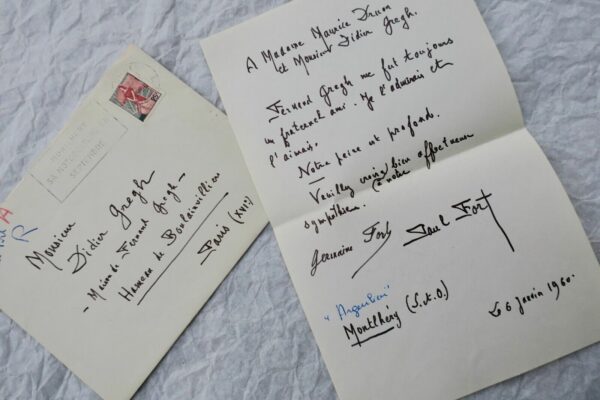 Monsieur
Didier Gregh
- Maison de Fernand Gregh -
Hameau de Boulainvilliers
Paris (XVIe)
A Madame Maurice Druon
et Monsieur Didier Gregh.
Fernand Gregh me fut toujours
un fraternel ami. Je l'admirais et
l'aimais.
Notre peine est profonde.
Veuillez croire bien affectueuse
à notre
sympathie.
Germaine Fort Paul Fort
Montlhéry (S.&O.)
Le 6 Janvier 1960.